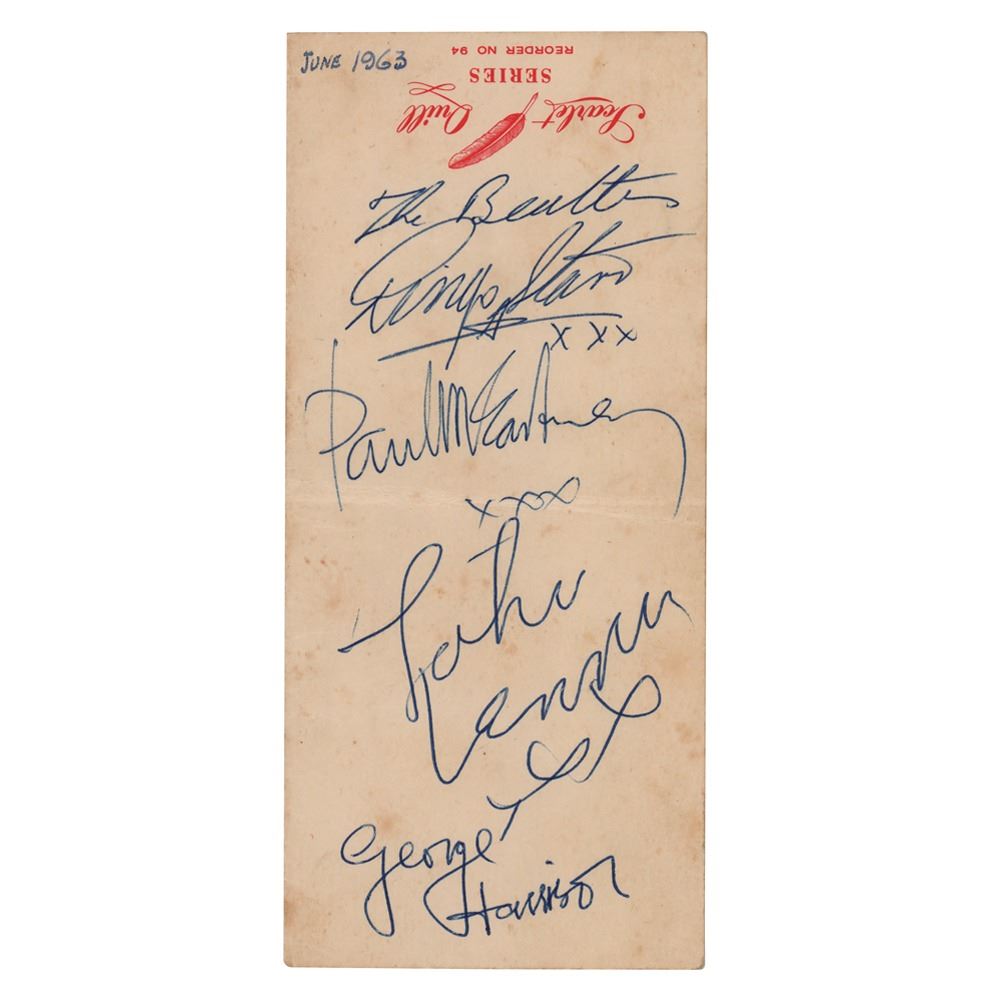 JUNE 1963
REORDER NO 94
SERIES
Scarlet Quill
The Beatles
Ringo Starr
xxx
Paul McCartney
xxx
John
Lennon
xxx
George
Harrison